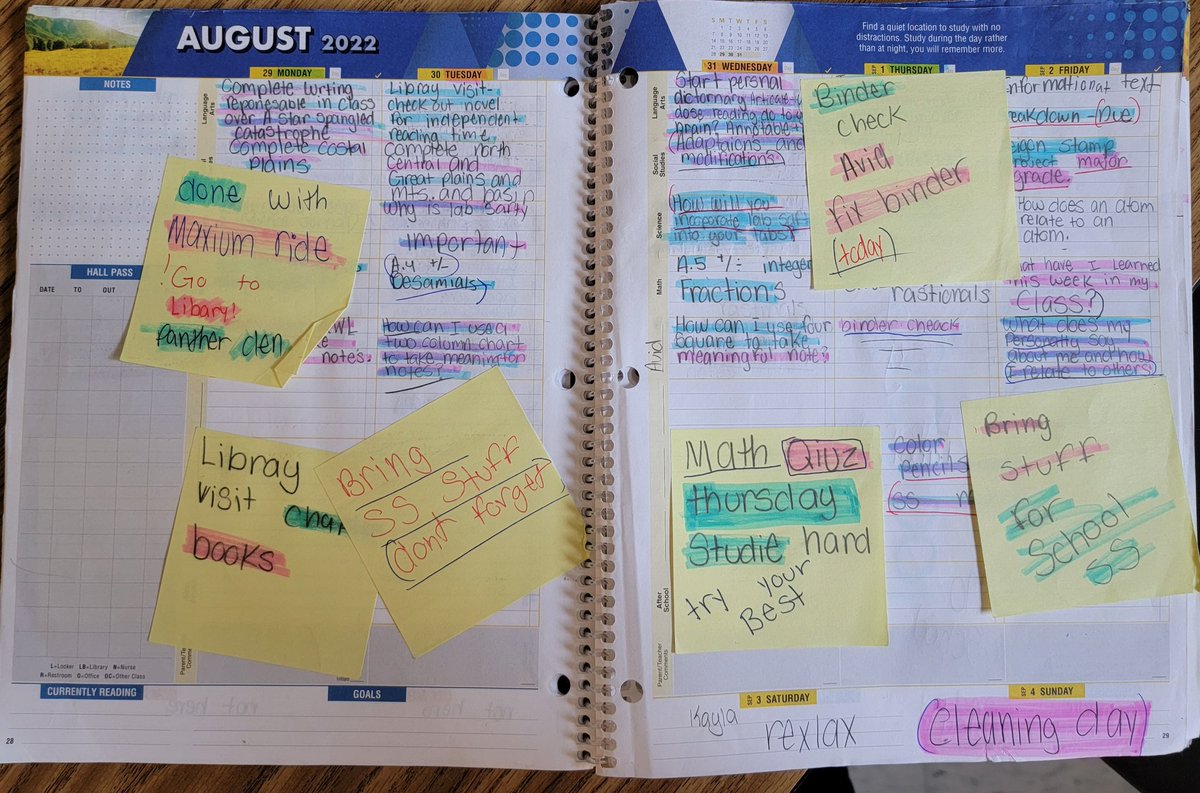 AUGUST 2022
NOTES
HALL PASS
DATE TO OUT
L=Locker LB=Library N=Nurse
R=Restroom O=Office OC=Other Class
CURRENTLY READING
GOALS
28
29 MONDAY
Language Arts
Complete writing
reponesable in class
over A star spangled
catastrophe
Complete costal
Plains
notes.
30 TUESDAY
Libray visit-
check out novel
for independent
reading time
Complete north
Central and
Great plains and
mts. and basin
Why is lab safty
important
A.4 +/-
Desamials
How can I use a
two column chart
to take meaning for
notes?
done with
Maxium ride
! Go to
Libary!
Panther den
Libray
visit
books
Bring
SS Stuff
dont forget
Parent/Teacher
S M T W T F S
Find a quiet location to study with no
distractions. Study during the day rather
than at night, you will remember more.
31 WEDNESDAY
Language Arts
Social Studies
Science
Math
Avid
After School
Parent/Teacher Comments
Start persnal
dose reading do to
Brain? Annotable +
Adaptaions and
modifications
How will you
incoperate lab saft
into your labs?
A.5 +/÷ integer
Fractions
How can I use four
Square to take
meaningful note?
SEP 1 THURSDAY
Binder
check
Avid
fix binder
(today)
rastionals
binder cheack
color
pencils
SS
Math Qiuz
thursday
Studie hard
try your
Best
SEP 2 FRIDAY
text
eakdown - Due
stamp
project major
grade.
How does an atom
relate to an
atom.
have I learned
this week in my
Class?
What does my
Personality say
about me and how
I relate to others
Bring
stuff
for
School
SS
SEP 3 SATURDAY
Kayla
rexlax
SEP 4 SUNDAY
cleaning day
29